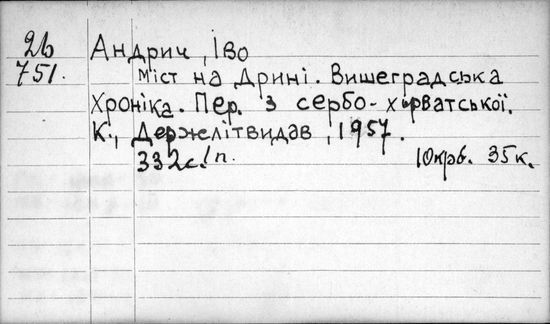 2b Андрич, Іво
751. Міст на Дрині. Вишеградська
Хроніка. Пер. з сербо-хорватської.
К., Держлітвидав, 1957.
332с. 10крб. 35к.